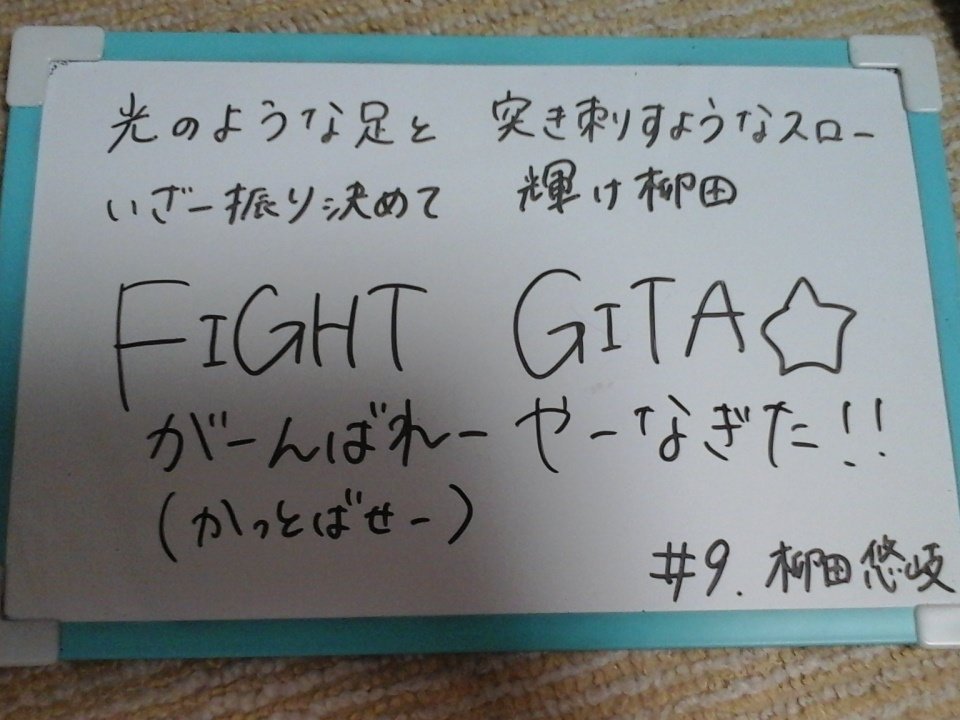 光のような足と 突き刺りすようなスロー
いざー振り決めて 輝け柳田
FIGHT GITA☆
がーんばれー やーなぎた!!
(かっとばせー)
#9. 柳田悠岐